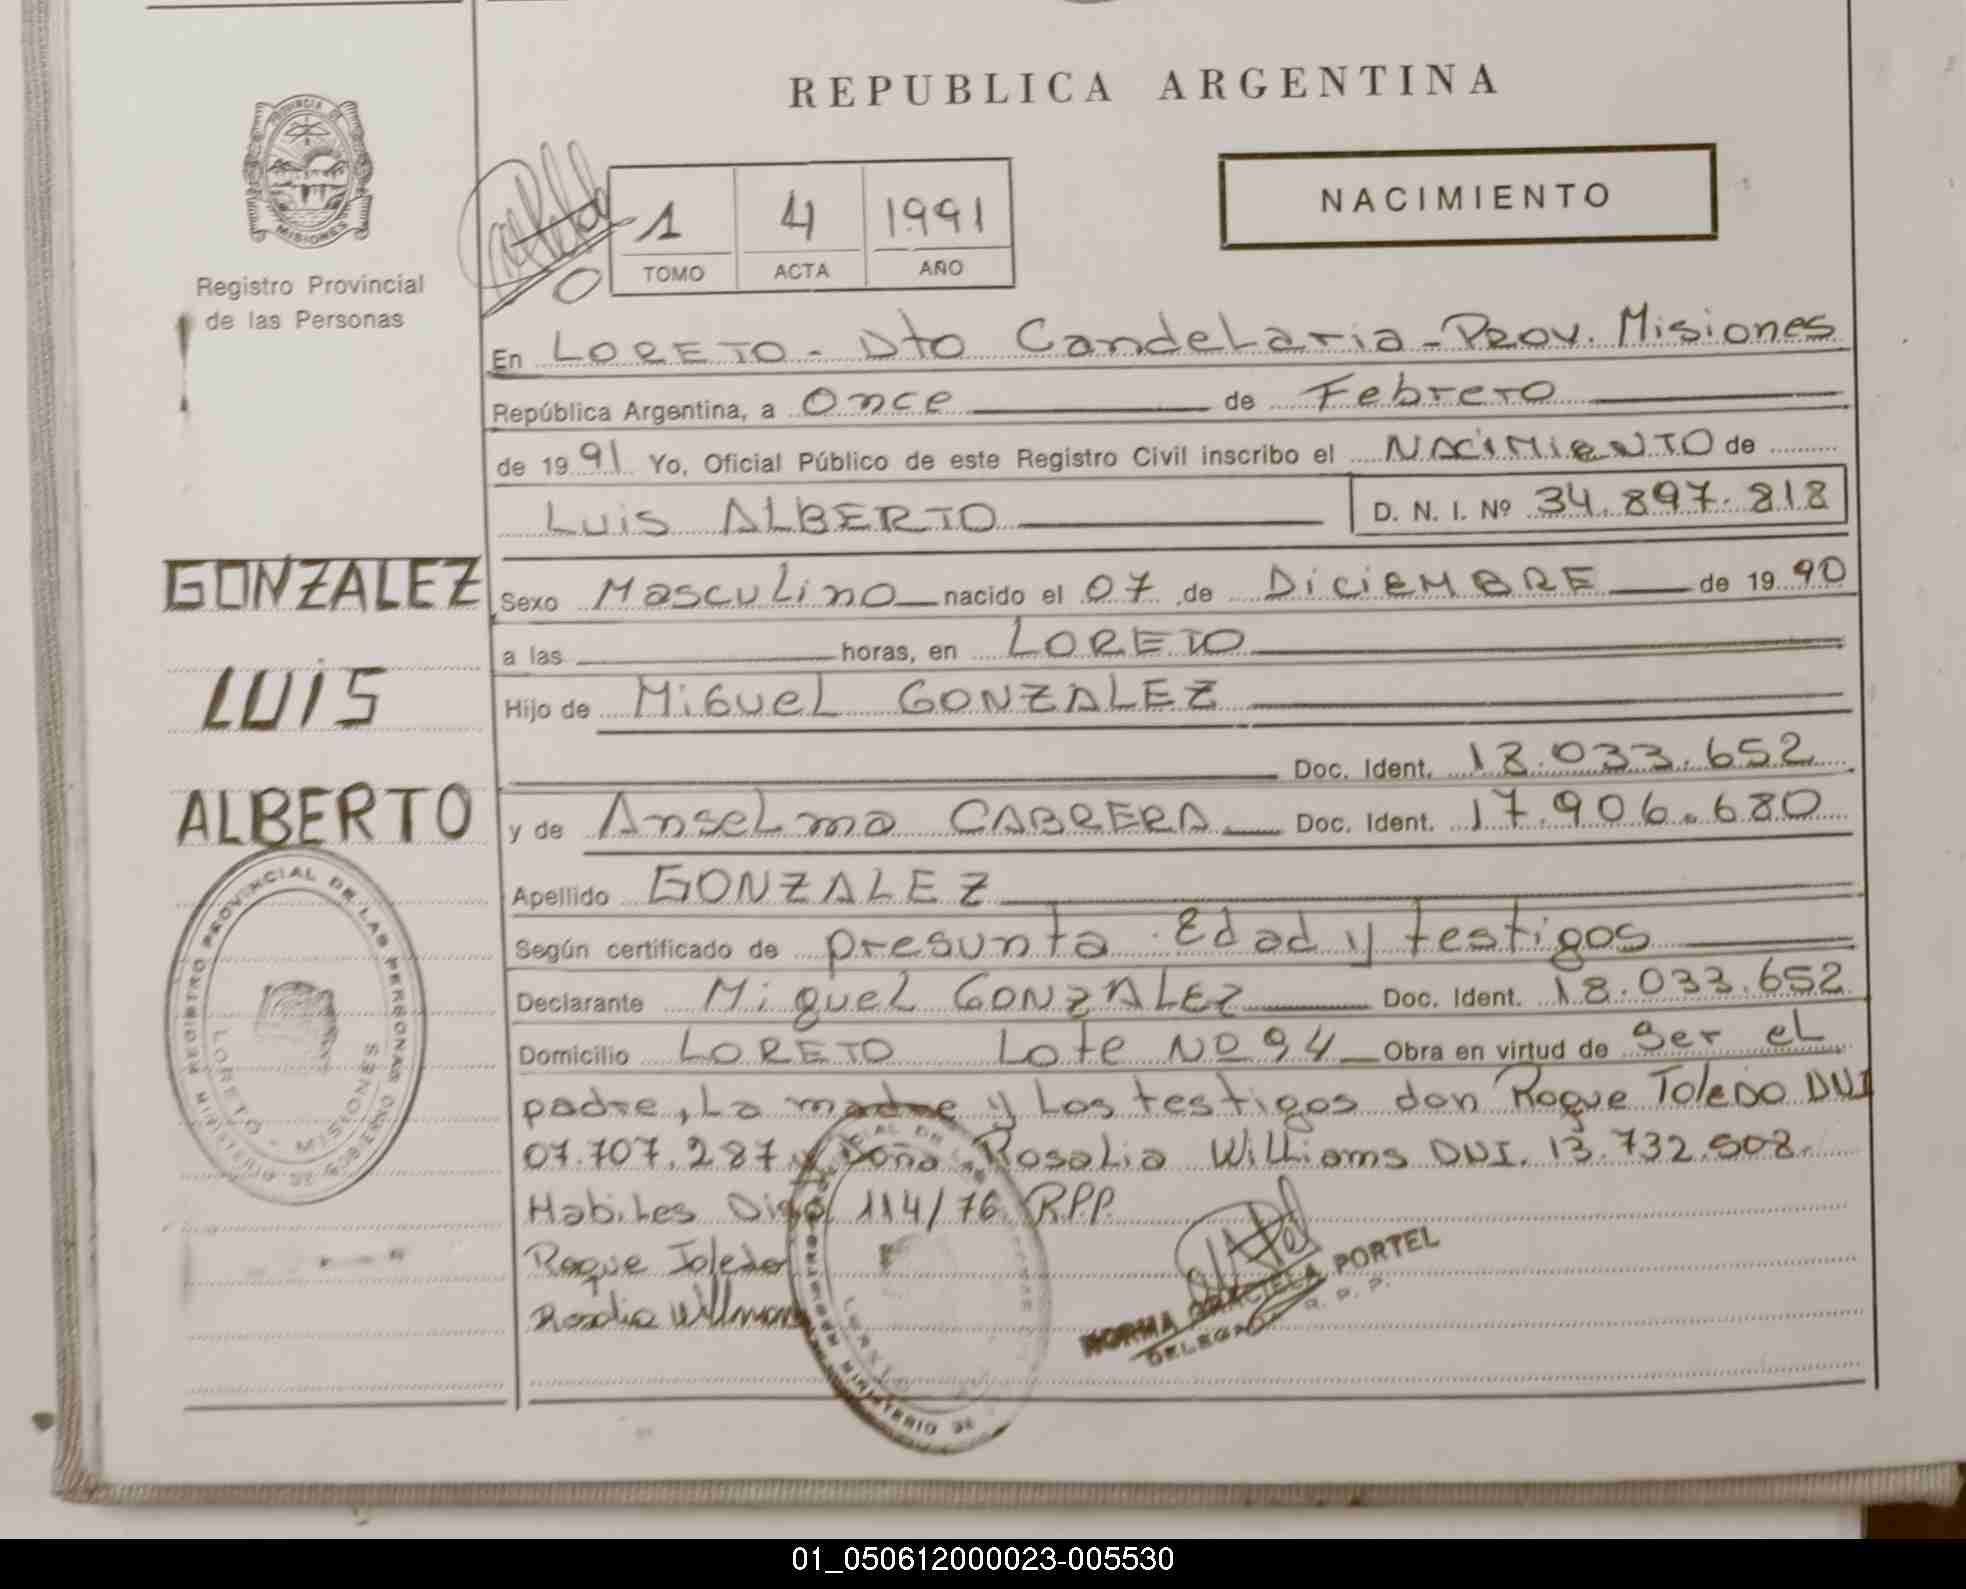 REPUBLICA ARGENTINA
PROVINCIA DE MISIONES
Registro Provincial
de las Personas
1 4 1991
TOMO ACTA AÑO
NACIMIENTO
En LORETO - Dto Candelaria - Prov. Misiones
República Argentina, a Once de Febrero
de 1991 Yo, Oficial Público de este Registro Civil inscribo el NACIMIENTO de
LUIS ALBERTO D. N. I. Nº 34.897.818
GONZALEZ
LUIS
ALBERTO
Sexo Masculino nacido el 07 de DICIEMBRE de 1990
a las horas, en LORETO
Hijo de Miguel GONZALEZ
Doc. Ident. 18.033.652
y de Anselma CABRERA Doc. Ident. 17.906.680
Apellido GONZALEZ
Según certificado de presunta Edad y testigos
Declarante Miguel GONZALEZ Doc. Ident. 18.033.652
Domicilio LORETO Lote Nº 94 Obra en virtud de ser el
padre, La madre y Los testigos don Roque Toledo DNI
07.707.287 y Doña Rosalia Williams DNI. 13.732.508.
Habiles Disp 114/76 RPP.
Roque Toledo
Rosalia
NORMA GRACIELA PORTEL
DELEGADA R. P. P.
REGISTRO PROVINCIAL DE LAS PERSONAS
MINISTERIO DE GOBIERNO
LORETO - MISIONES
MINISTERIO DE
01_050612000023-005530